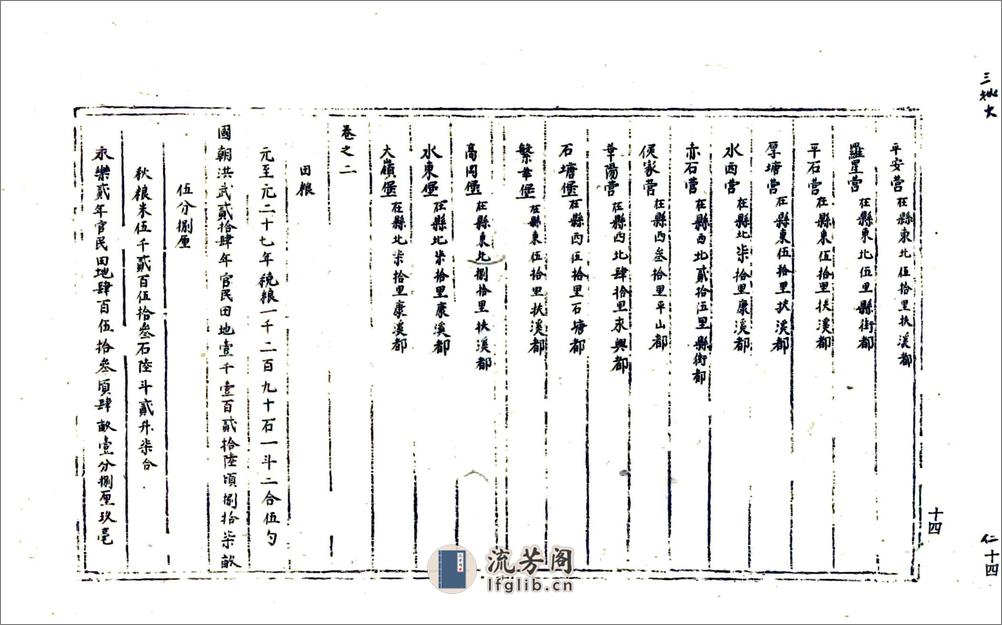 三
仁十四
十四
平安营在縣東北伍拾里扶溪都
羅星营在縣東北伍里縣街都
平石营在縣東伍拾里扶溪都
厚塘营在縣東伍拾里扶溪都
水西营在縣北柒拾里康溪都
赤石营在縣西北貳拾伍里縣街都
侯家营在縣西叁拾里平山都
華陽营在縣西北肆拾里永興都
石塘堡在縣西伍拾里石塘都
繁華堡在縣東伍拾里扶溪都
高岡堡在縣東北捌拾里扶溪都
水東堡在縣北柒拾里康溪都
大嶺堡在縣北柒拾里康溪都
卷之二
田粮
元至元二十七年税粮一千二百九十石一斗二合伍勺
國朝洪武貳拾肆年官民田地壹千壹百貳拾陸頃捌拾柒畝
伍分捌厘
秋粮米伍千貳百伍拾叁石陸斗貳升柒合
永樂貳年官民田地肆百伍拾叁頃肆畝壹分捌厘玖毫
流芳阁
lfglib.cn